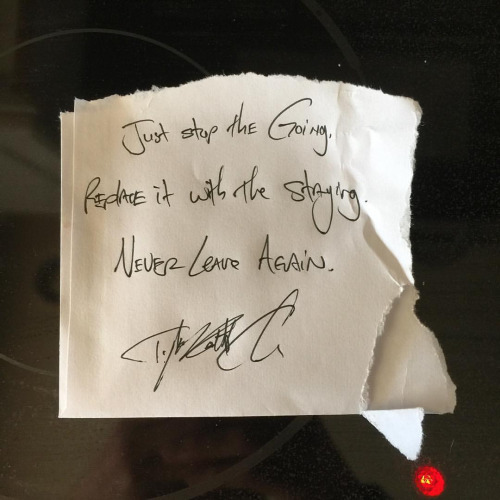 Just stop the Going.
REPLACE it with the staying.
NEVER LEAVE AGAIN.